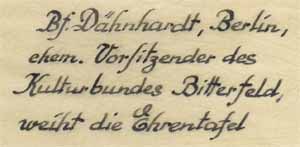 Bf. Dähnhardt, Berlin,
ehem. Vorsitzender des
Kulturbundes Bitterfeld,
weiht die Ehrentafel